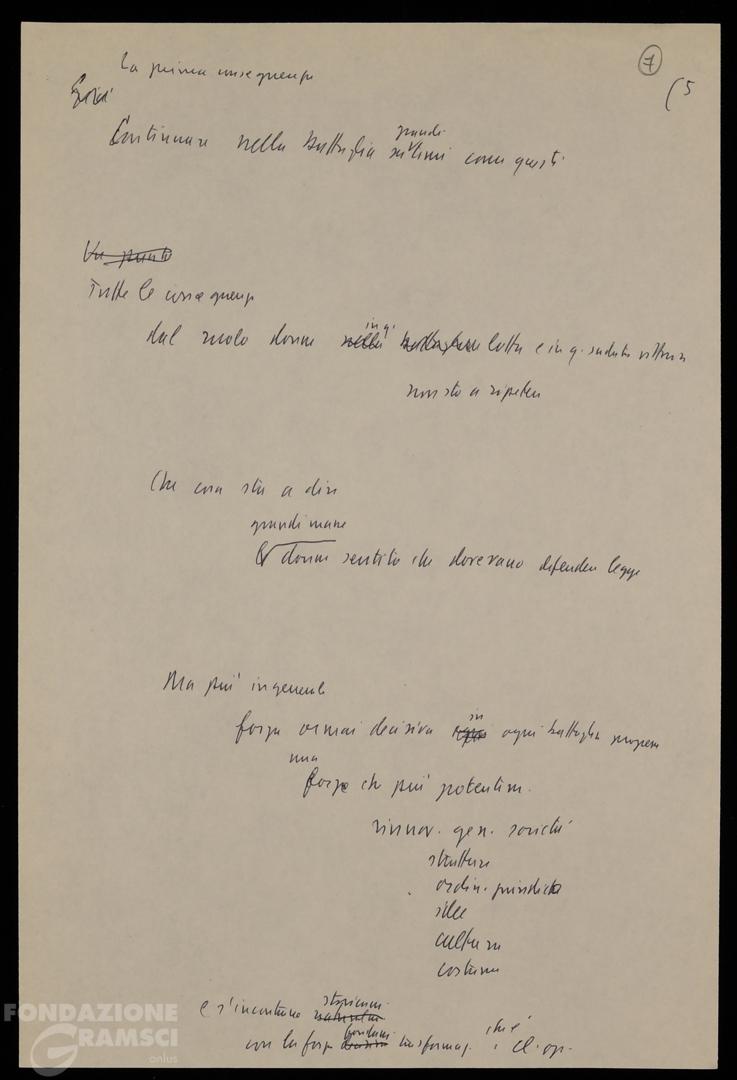 La prima conseguenza
7
(5
Continuare nella battaglia grandi ultimi come questi
Un punto
Tutte le conseguenze
dal ruolo donne nella in q. lotta e in q. vittoria
non sto a ripetere
Che cosa sta a dire
grandi masse
donne sentito che dovevano difendere legge
Ma più in generale
forza ormai decisiva in ogni battaglia progress
una
forza che più potentem.
rinnov. gen. società
strutture
ordin. giuridico
idee
cultura
costume
e s'incontrano storicam.
con la forza trasformaz. che è cl. op.
FONDAZIONE
GRAMSCI
onlus